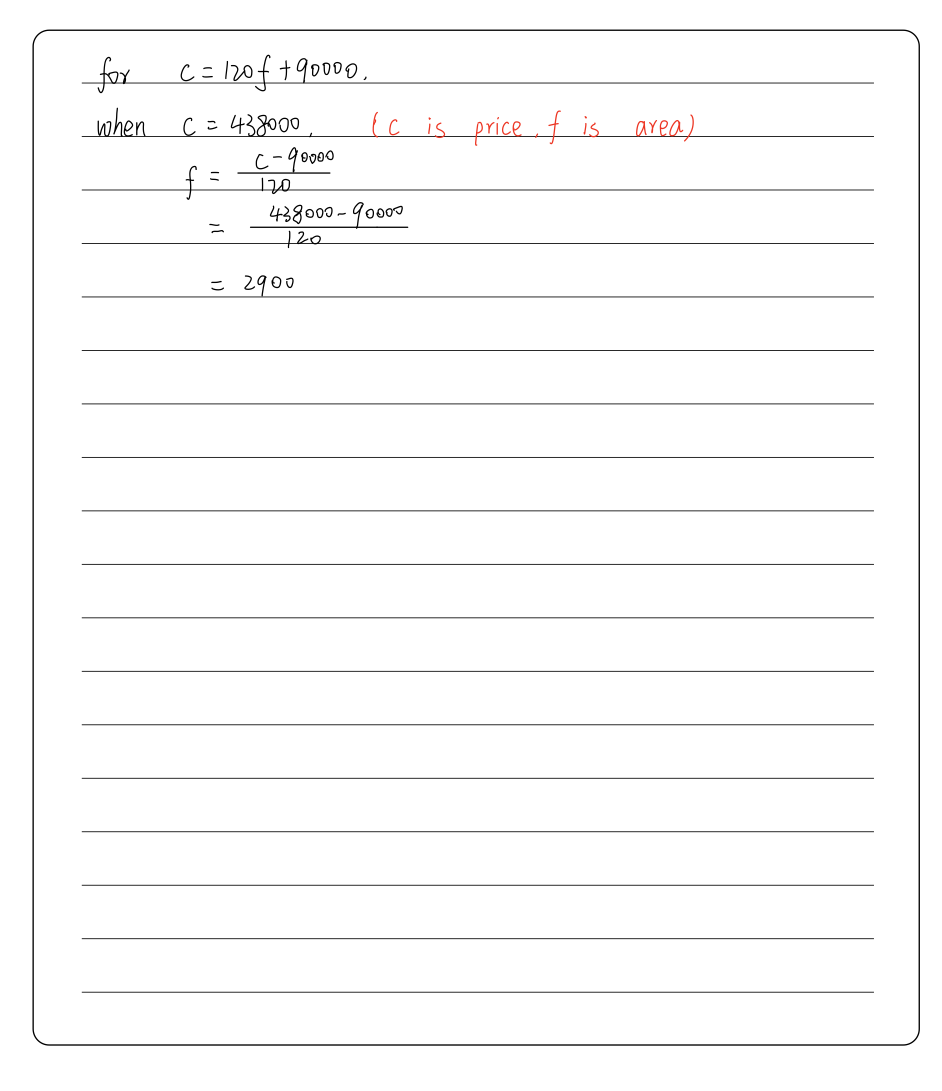 for C = 120f + 90000.
when C = 438000. (C is price. f is area)
f = \frac{C - 90000}{120}
= \frac{438000 - 90000}{120}
= 2900